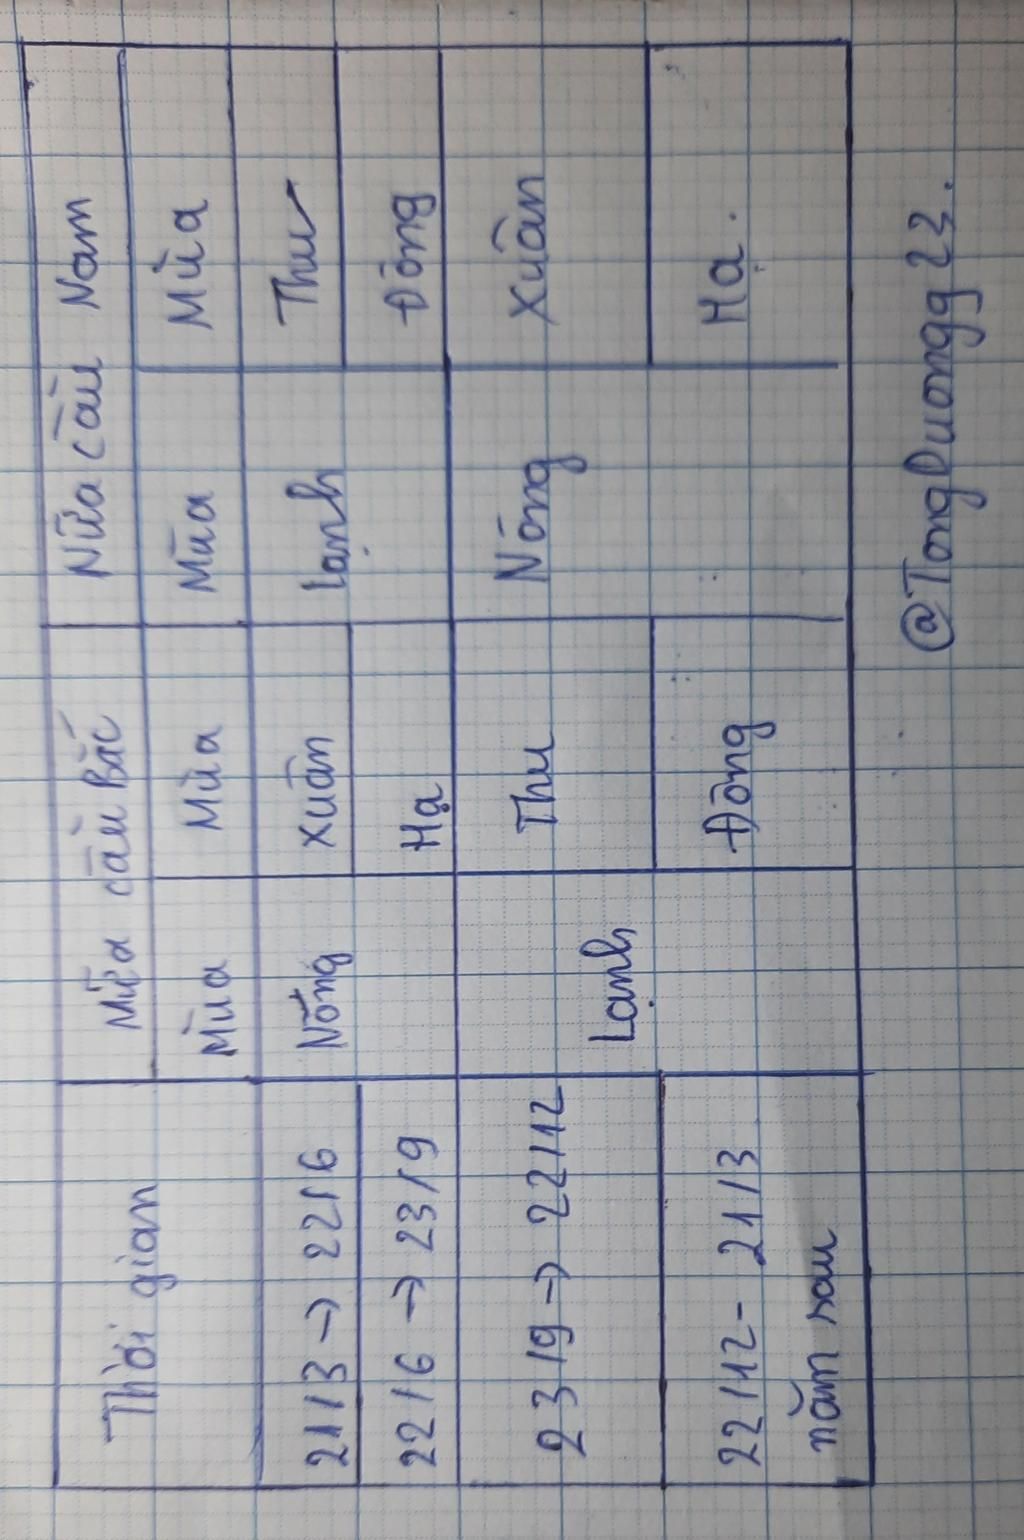 Thời gian
Nửa cầu Bắc
Nửa cầu Nam
Mùa
Mùa
Mùa
Mùa
21/3 → 22/6
Nóng
Xuân
Lạnh
Thu
22/6 → 23/9
Hạ
Đông
23/9 → 22/12
Lạnh
Thu
Nóng
Xuân
22/12 - 21/3
năm sau
Đông
Hạ.
@TongDuongg23.